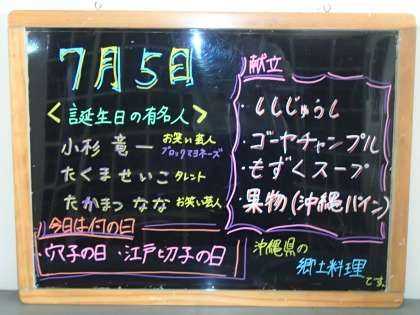 7月5日
<誕生日の有名人>
小杉 竜一 お笑い芸人
ブロックマヨネーズ
たくませいこ タレント
たかまつ なな お笑い芸人
今日は付の日
・穴子の日 ・江戸切子の日
献立
・ししじゅうし
・ゴーヤチャンプル
・もずくスープ
・果物(沖縄パイン)
沖縄県の
郷土料理
です。